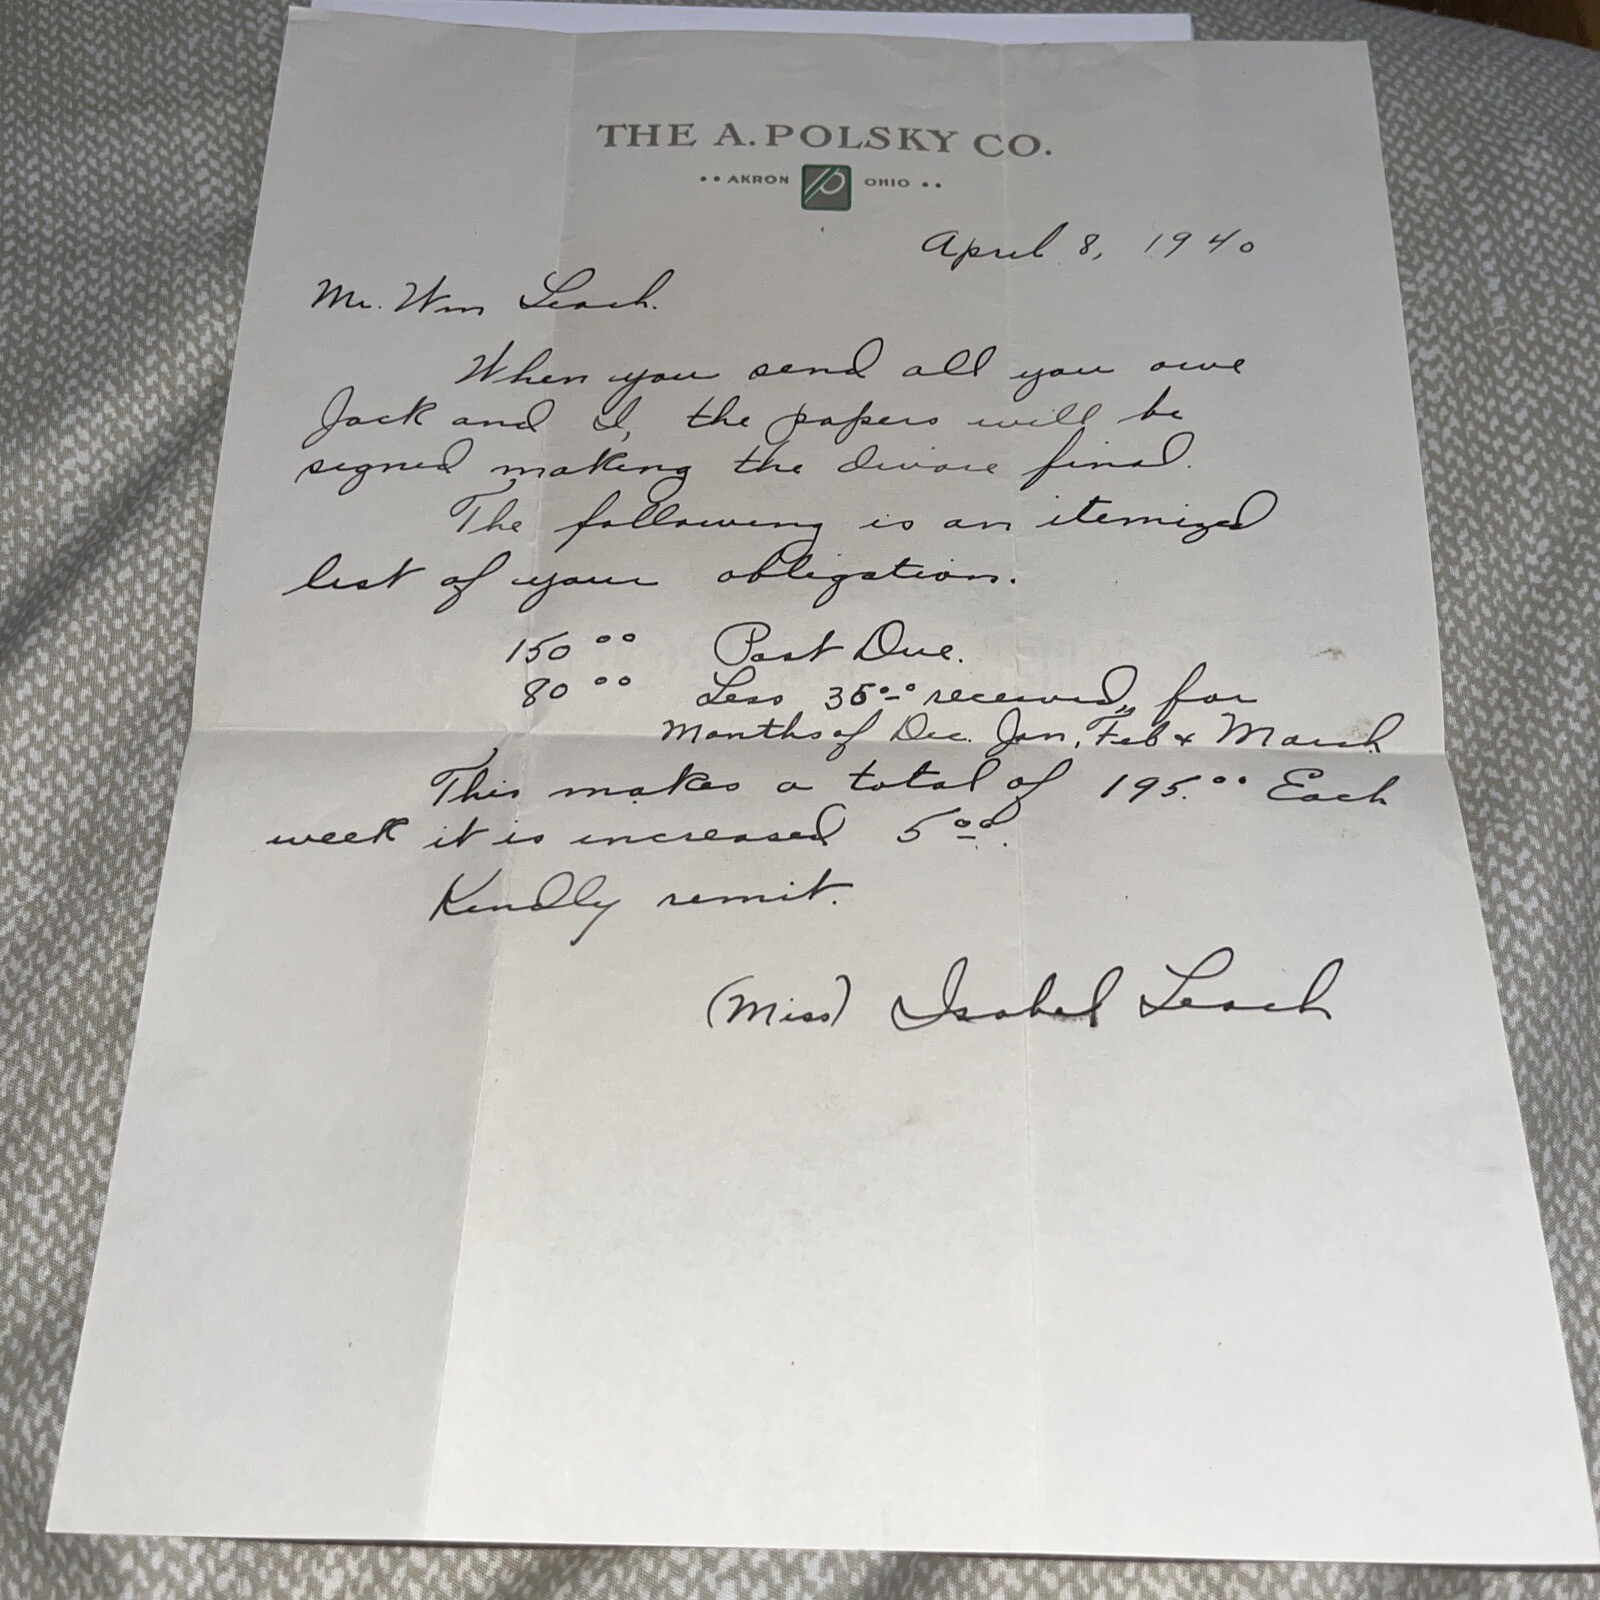 THE A. POLSKY CO.
•• AKRON P OHIO ••
April 8, 1940
Mr. Wm Leach.
When you send all you owe
Jack and I, the papers will be
signed making the divorce final.
The following is an itemized
list of your obligations.
150 00 Past Due.
80 00 Less 35 00 received, for
Months of Dec. Jan, Feb + March
This makes a total of 195.00 Each
week it is increased 5 00.
Kindly remit.
(Miss) Isabel Leach